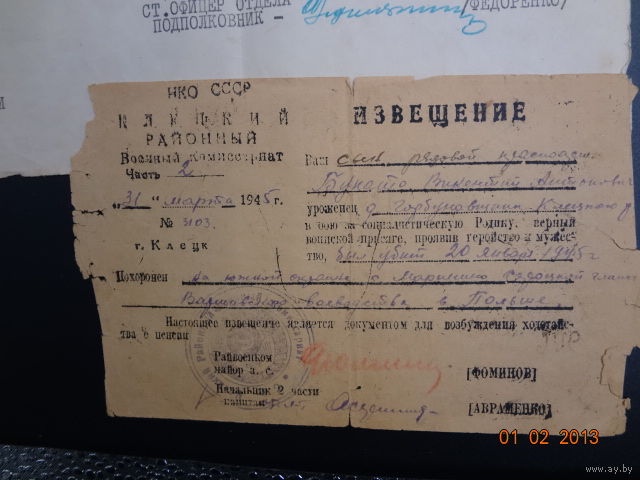 СТ.ОФИЦЕР ОТДЕЛА
ПОДПОЛКОВНИК - /ФЕДОРЕНКО/
НКО СССР
КЛЕЦКИЙ
РАЙОННЫЙ
Военный Комиссариат
Часть 2.
"31" марта 1945г.
№ 3103.
г. Клецк
ИЗВЕЩЕНИЕ
Ваш сын, рядовой
Винентий Антонович
уроженец д.
в бою за социалистическую Родину, верный
воинской присяге, проявив геройство и мужес-
тво, был убит 20 января 1945г
Похоронен на южной окраине с.
Варшавского воеводства в Польше.
Настоящее извещение является документом для возбуждения ходотайс-
тва о пенсии
Райвоенком
майор а. с. [ФОМИНОВ]
Начальник 2 части
капитан [АВРАМЕНКО]
01 02 2013
www.ay.by